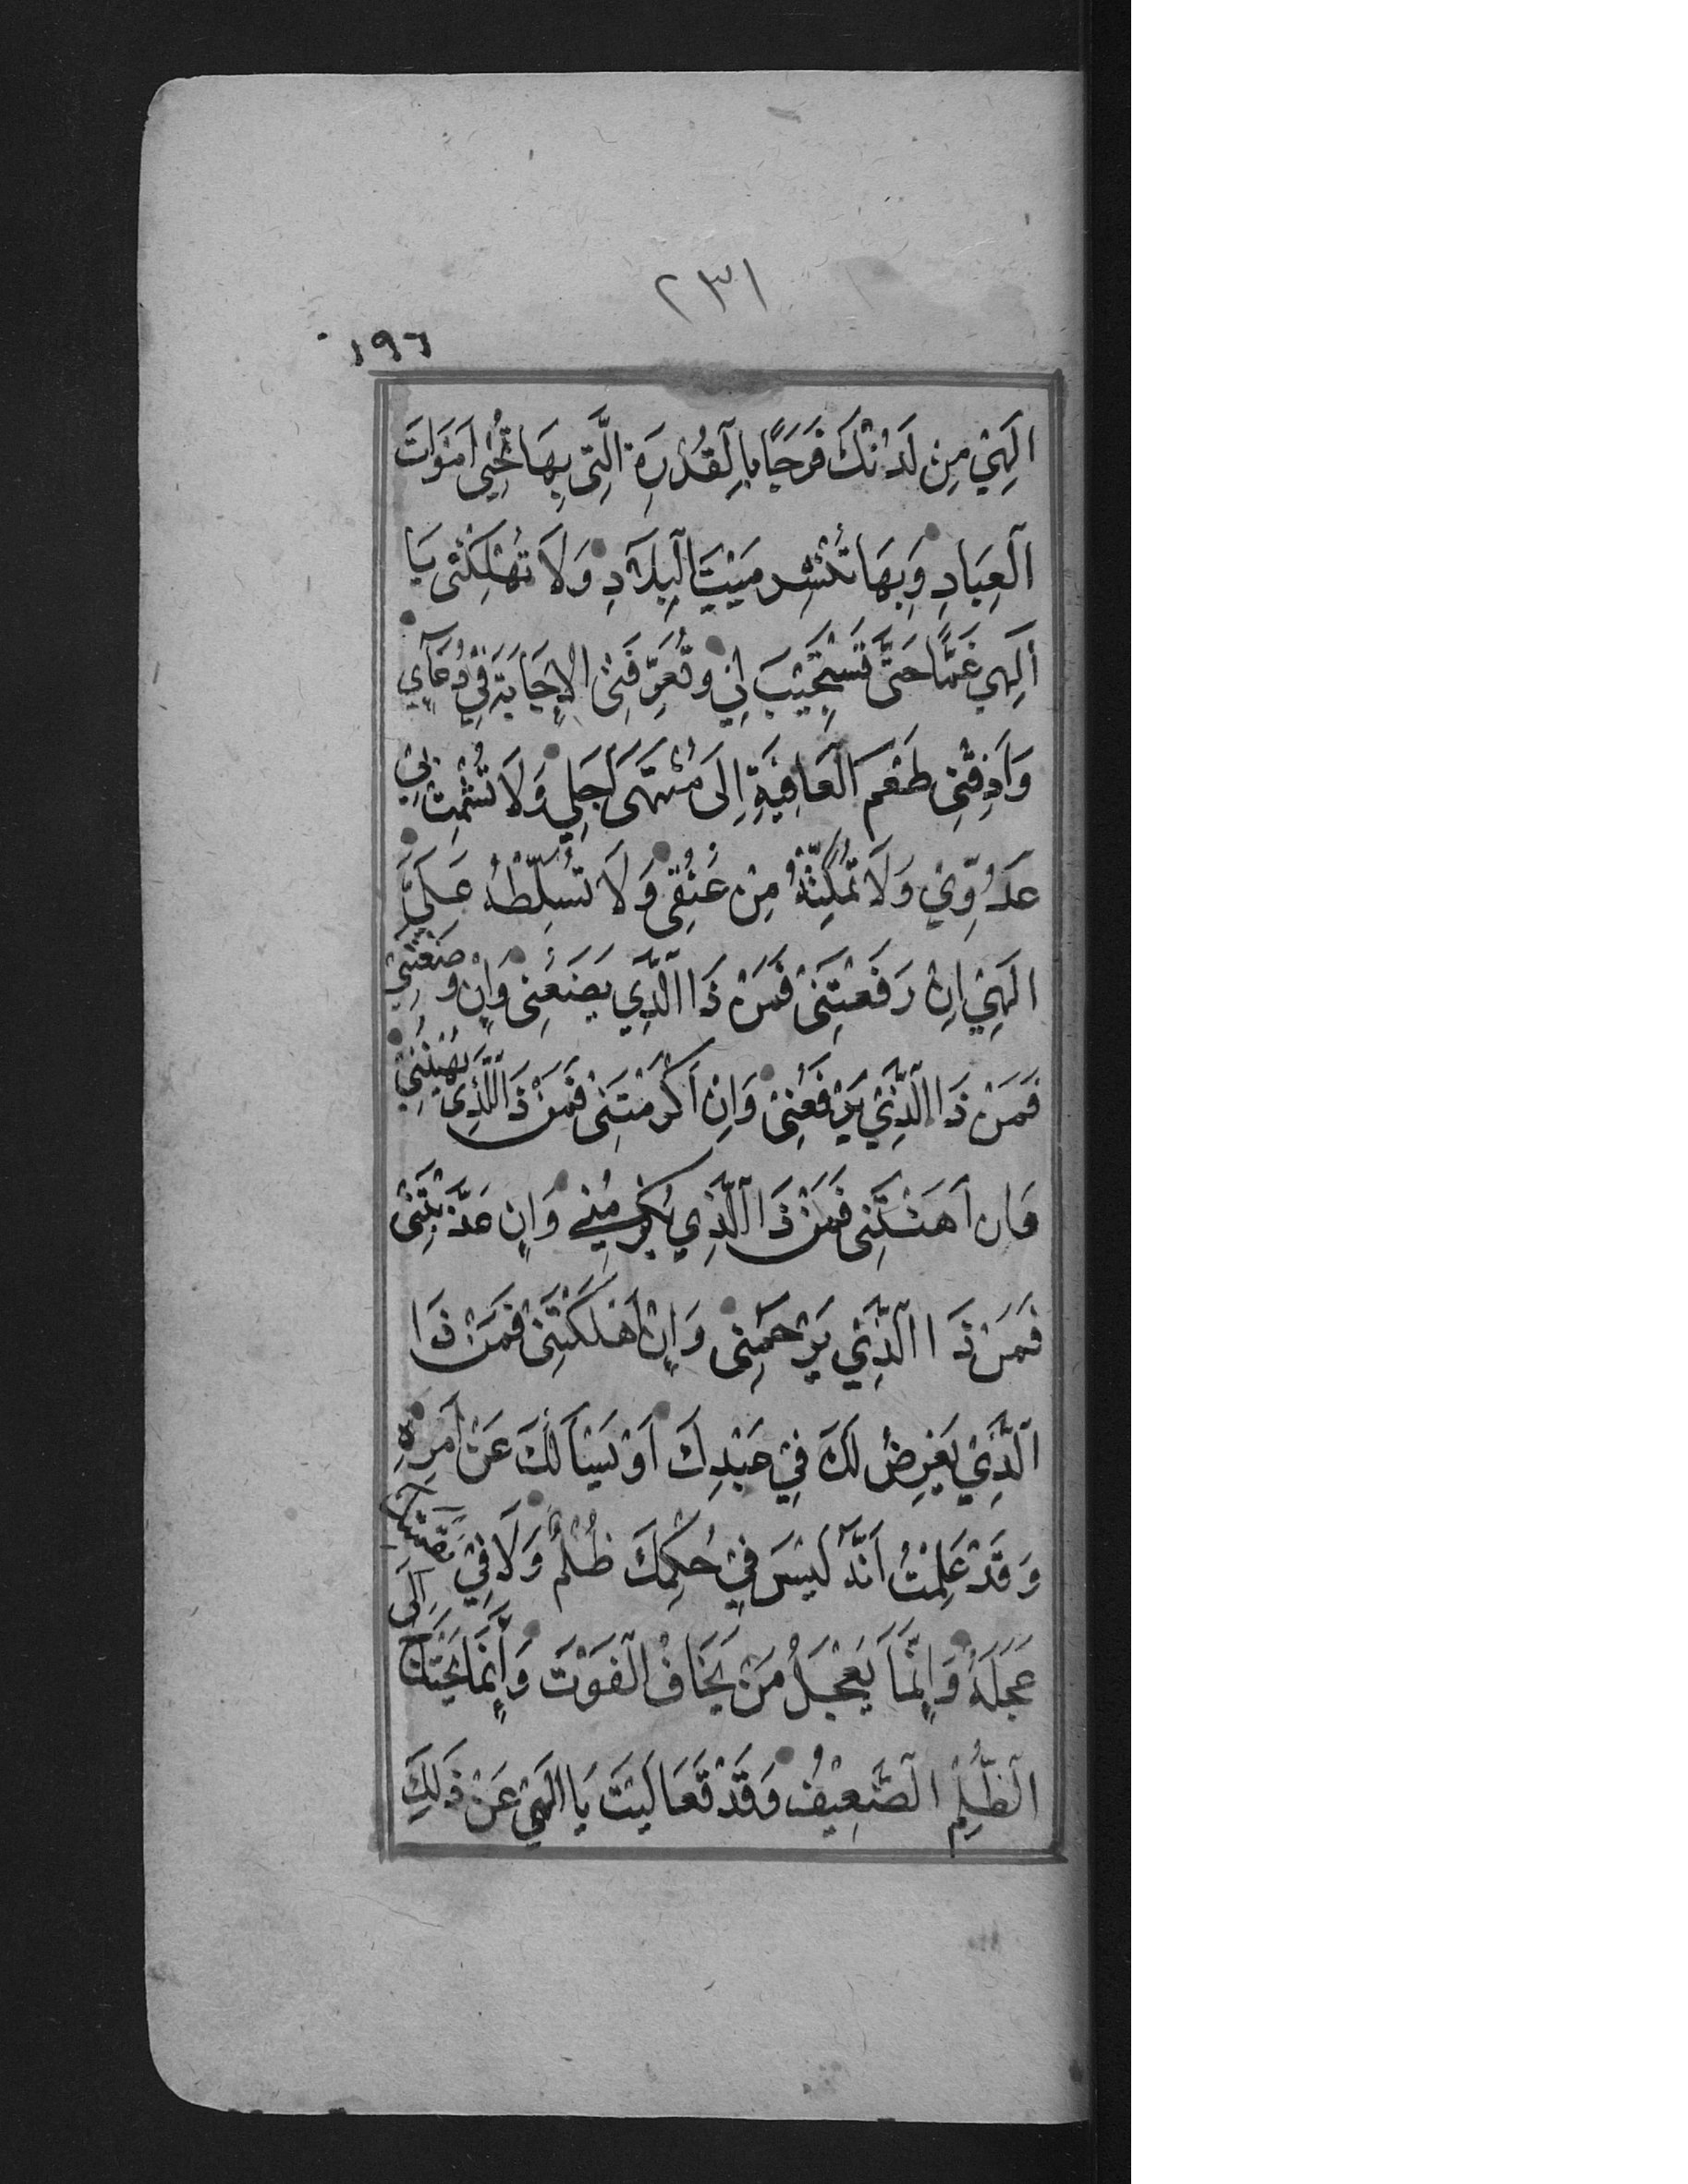 ٢٣١
١٩٦
اِلَهِيْ مِنْ لَدُنْكَ فَرَجًا بِالْقُدْرَةِ الَّتِي بِهَا تُحْيِي اَمْوَاتَ
الْعِبَادِ وَبِهَا تَنْشُرُ مَيْتَ الْبِلَادِ وَلَا تُهْلِكْنِي يَا
اِلَهِي غَمًّا حَتَّى تَسْتَجِيْبَ لِيْ وَتُعَرِّفَنِي الْاِجَابَةَ فِيْ دُعَآئِي
وَاَذِقْنِي طَعْمَ الْعَافِيَةِ اِلَى مُنْتَهَى اَجَلِي وَلَا تُشْمِتْ بِيْ
عَدُوِّيْ وَلَا تُمَكِّنْهُ مِنْ عُنُقِي وَلَا تُسَلِّطْهُ عَلَيَّ
اِلَهِيْ اِنْ رَفَعْتَنِي فَمَنْ ذَا الَّذِي يَضَعُنِي وَاِنْ وَضَعْتَنِيْ
فَمَنْ ذَا الَّذِيْ يَرْفَعُنِيْ وَاِنْ اَكْرَمْتَنِي فَمَنْ ذَا الَّذِي يُهِيْنُنِيْ
وَان اَهَنْتَنِي فَمَنْ ذَا الَّذِي يُكْرِمُنِي وَاِن عَذَّبْتَنِيْ
فَمَنْ ذَا الَّذِيْ يَرْحَمُنِي وَاِنْ اَهْلَكْتَنِي فَمَنْ ذَا
الَّذِيْ يَعْرِضُ لَكَ فِيْ عَبْدِكَ اَوْ يَسْأَلُكَ عَنْ اَمْرِهِ
وَقَدْ عَلِمْتُ اَنَّهُ لَيْسَ فِيْ حُكْمِكَ ظُلْمٌ وَلَا فِيْ نَقِمَتِكَ
عَجَلَةٌ وَاِنَّمَا يَعْجَلُ مَنْ يَخَافُ الْفَوْتَ وَاِنَّمَا يَحْتَاجُ اِلَى
الظُّلْمِ الضَّعِيْفُ وَقَدْ تَعَالَيْتَ يَا اِلَهِيْ عَنْ ذَلِكَ